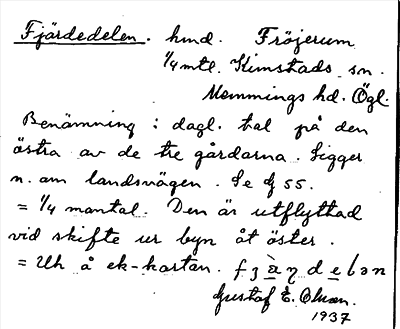 Fjärdedelen. hmd. Fröjerum
1/4 mtl. Kimstads sn.
Memmings hd. Ögl.
Benämning i dagl. tal på den
östra av de tre gårdarna. Ligger
n. om landsvägen. Se G 55.
= 1/4 mantal. Den är utflyttad
vid skifte ur byn åt öster.
= Uh å ek-kartan. fʒàɳdelən
Gustaf E. Olson.
1937